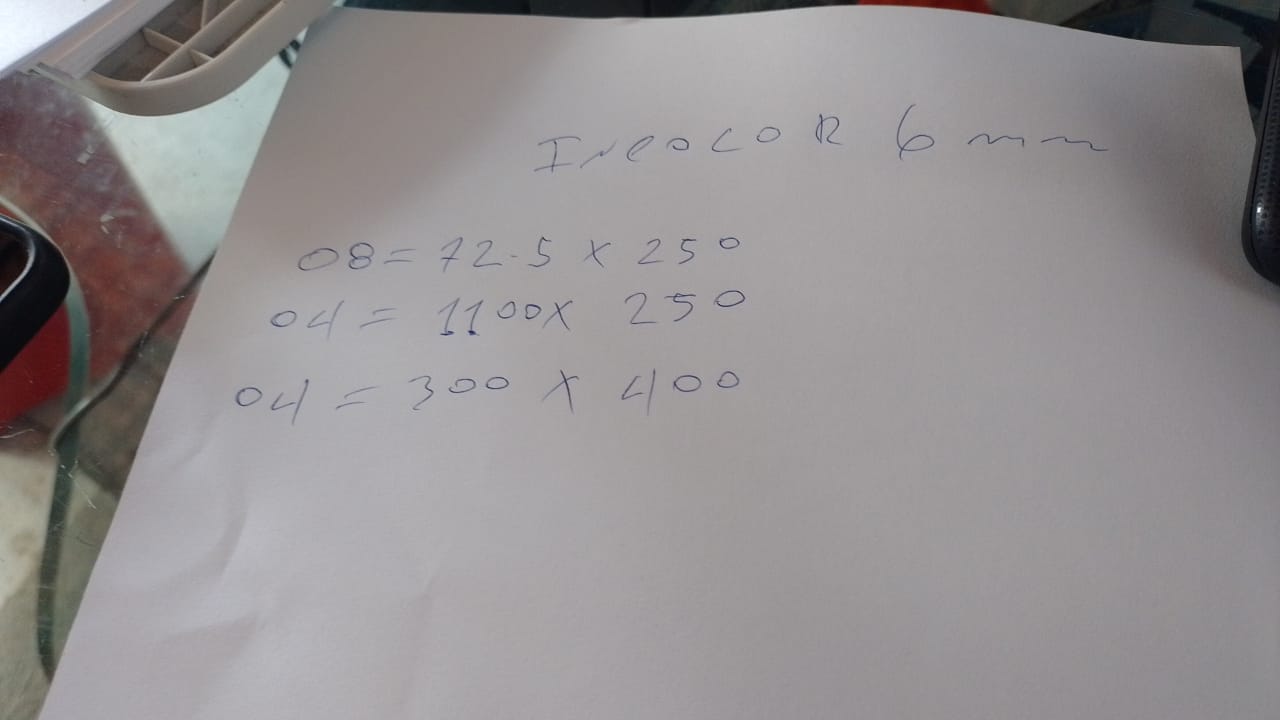 INCOLOR 6 mm
08 = 72.5 x 250
04 = 1100 x 250
04 = 300 x 400